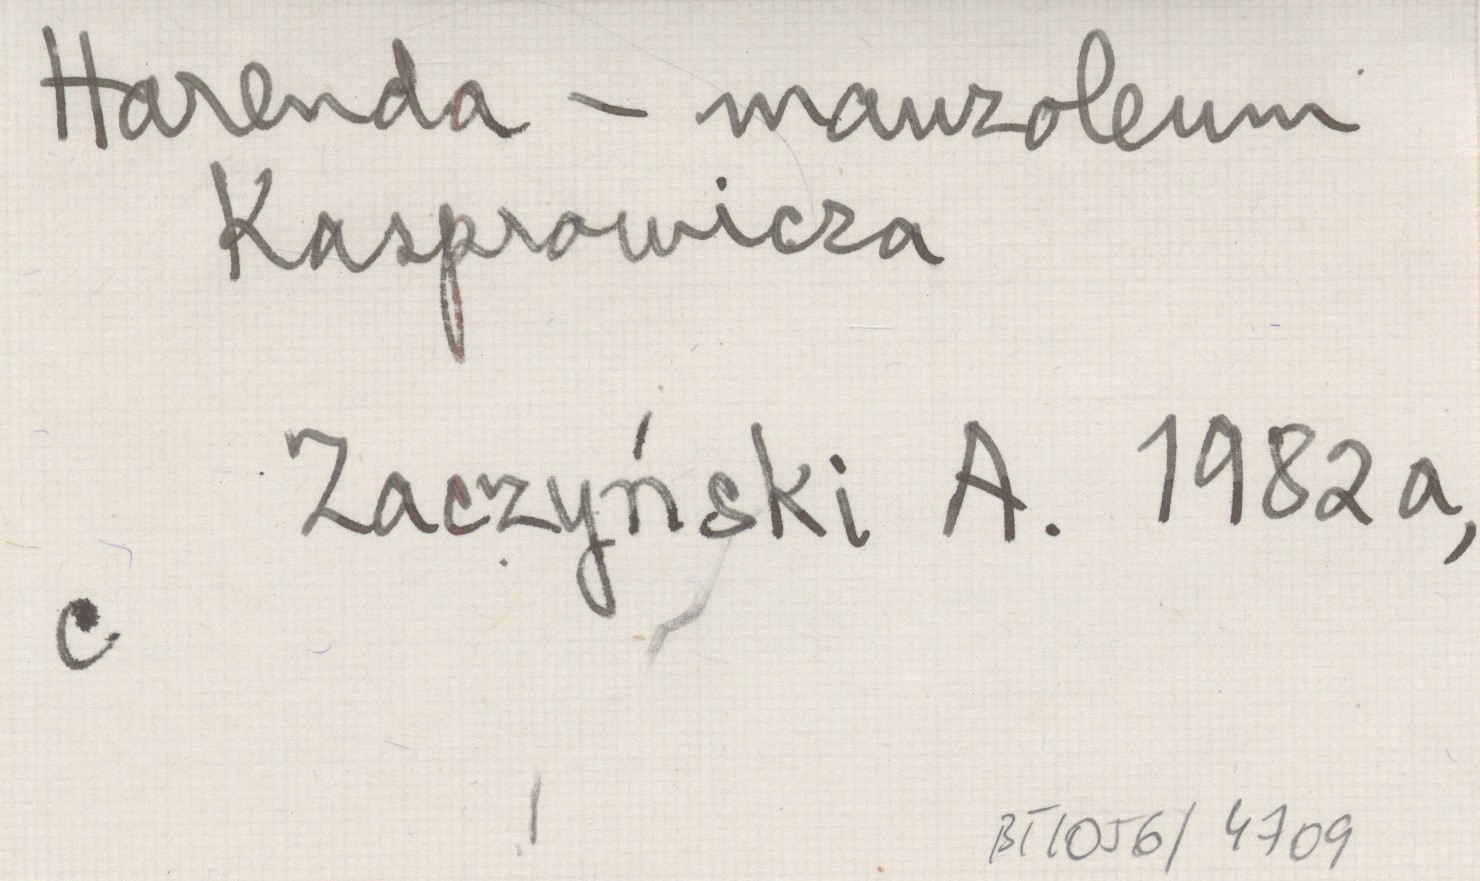 Harenda - mauzoleum
Kasprowicza
Zaczyński A. 1982a,
c
BT1056/4709